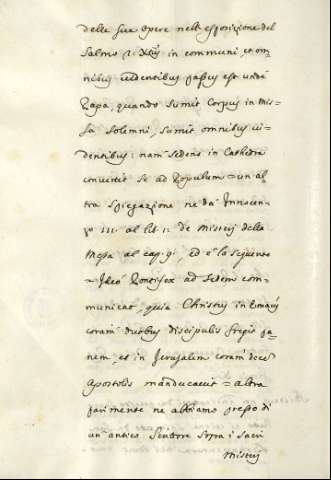 delle sue opere nell'esposizione del
Salmo 21. in communi, et om=
nibus videntibus passus est unde
Papa, quando sumit Corpus in Mis=
sa Solemni, sumit omnibus vi=
dentibus: nam Sedens in Cathedra
convertit se ad Populum = un al
tra spiegazione ne dà Innocen=
zo III. al lib. de Misterij della
Messa al cap. 9. ed è la seguente
= Ideo Pontifex ad Sedem com=
municat, quia Christus in Emaus
coram duobus discipulis fregit pa=
nem, et in Jerusalem coram
Apostolis manducavit = altra
parimente ne abbiamo presso di
un antico Scrittore sopra i Sacri
Misterij